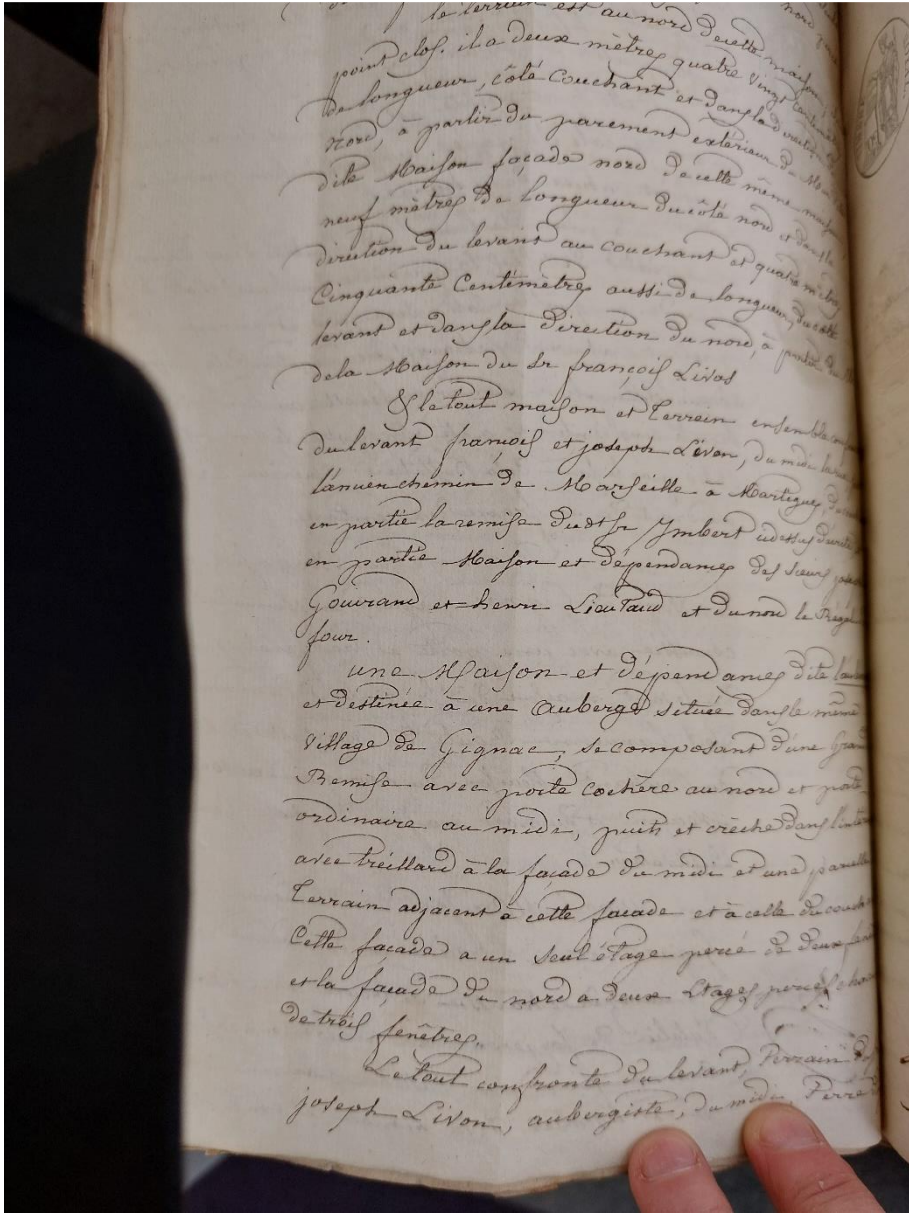 le terrain est au nord de cette maison
point clos. il a deux mètres quatre vingt centimè
de longueur, côté Couchant et dans la direction
nord, à partir du parement extérieur du Mur
dite Maison façade nord de cette même maison
neuf mètres de longueur du côté nord et dans la
direction du levant au couchant et quatre mètres
Cinquante Centimètres aussi de longueur, du côté
levant et dans la direction du nord, à partir
de la Maison du Sr françois Livos
& le tout maison et Terrain ensemble
du levant françois et joseph Livon, du midi
l'ancien chemin de Marseille à Martigues,
en partie la remise dudt Sr Ymbert
en partie Maison et dépendances des sœurs
Gouirand et henri Lieutaud et du nord le
four.
une Maison et dépendances dite
et destinée à une Auberge située dans le même
Village de Gignac, se composant d'une Gran
Remise avec porte cochère au nord et porte
ordinaire au midi, puits et crèche dans l'intér
avec treillard à la façade du midi et une parcelle
Terrain adjacent à cette façade et à celle du couch
Cette façade a un seul étage percé de deux fenê
et la façade du nord a deux Etages percés chac
de trois fenêtres.
Le tout confronte du levant, Terrain
joseph Livon, aubergiste, du midi, Terre